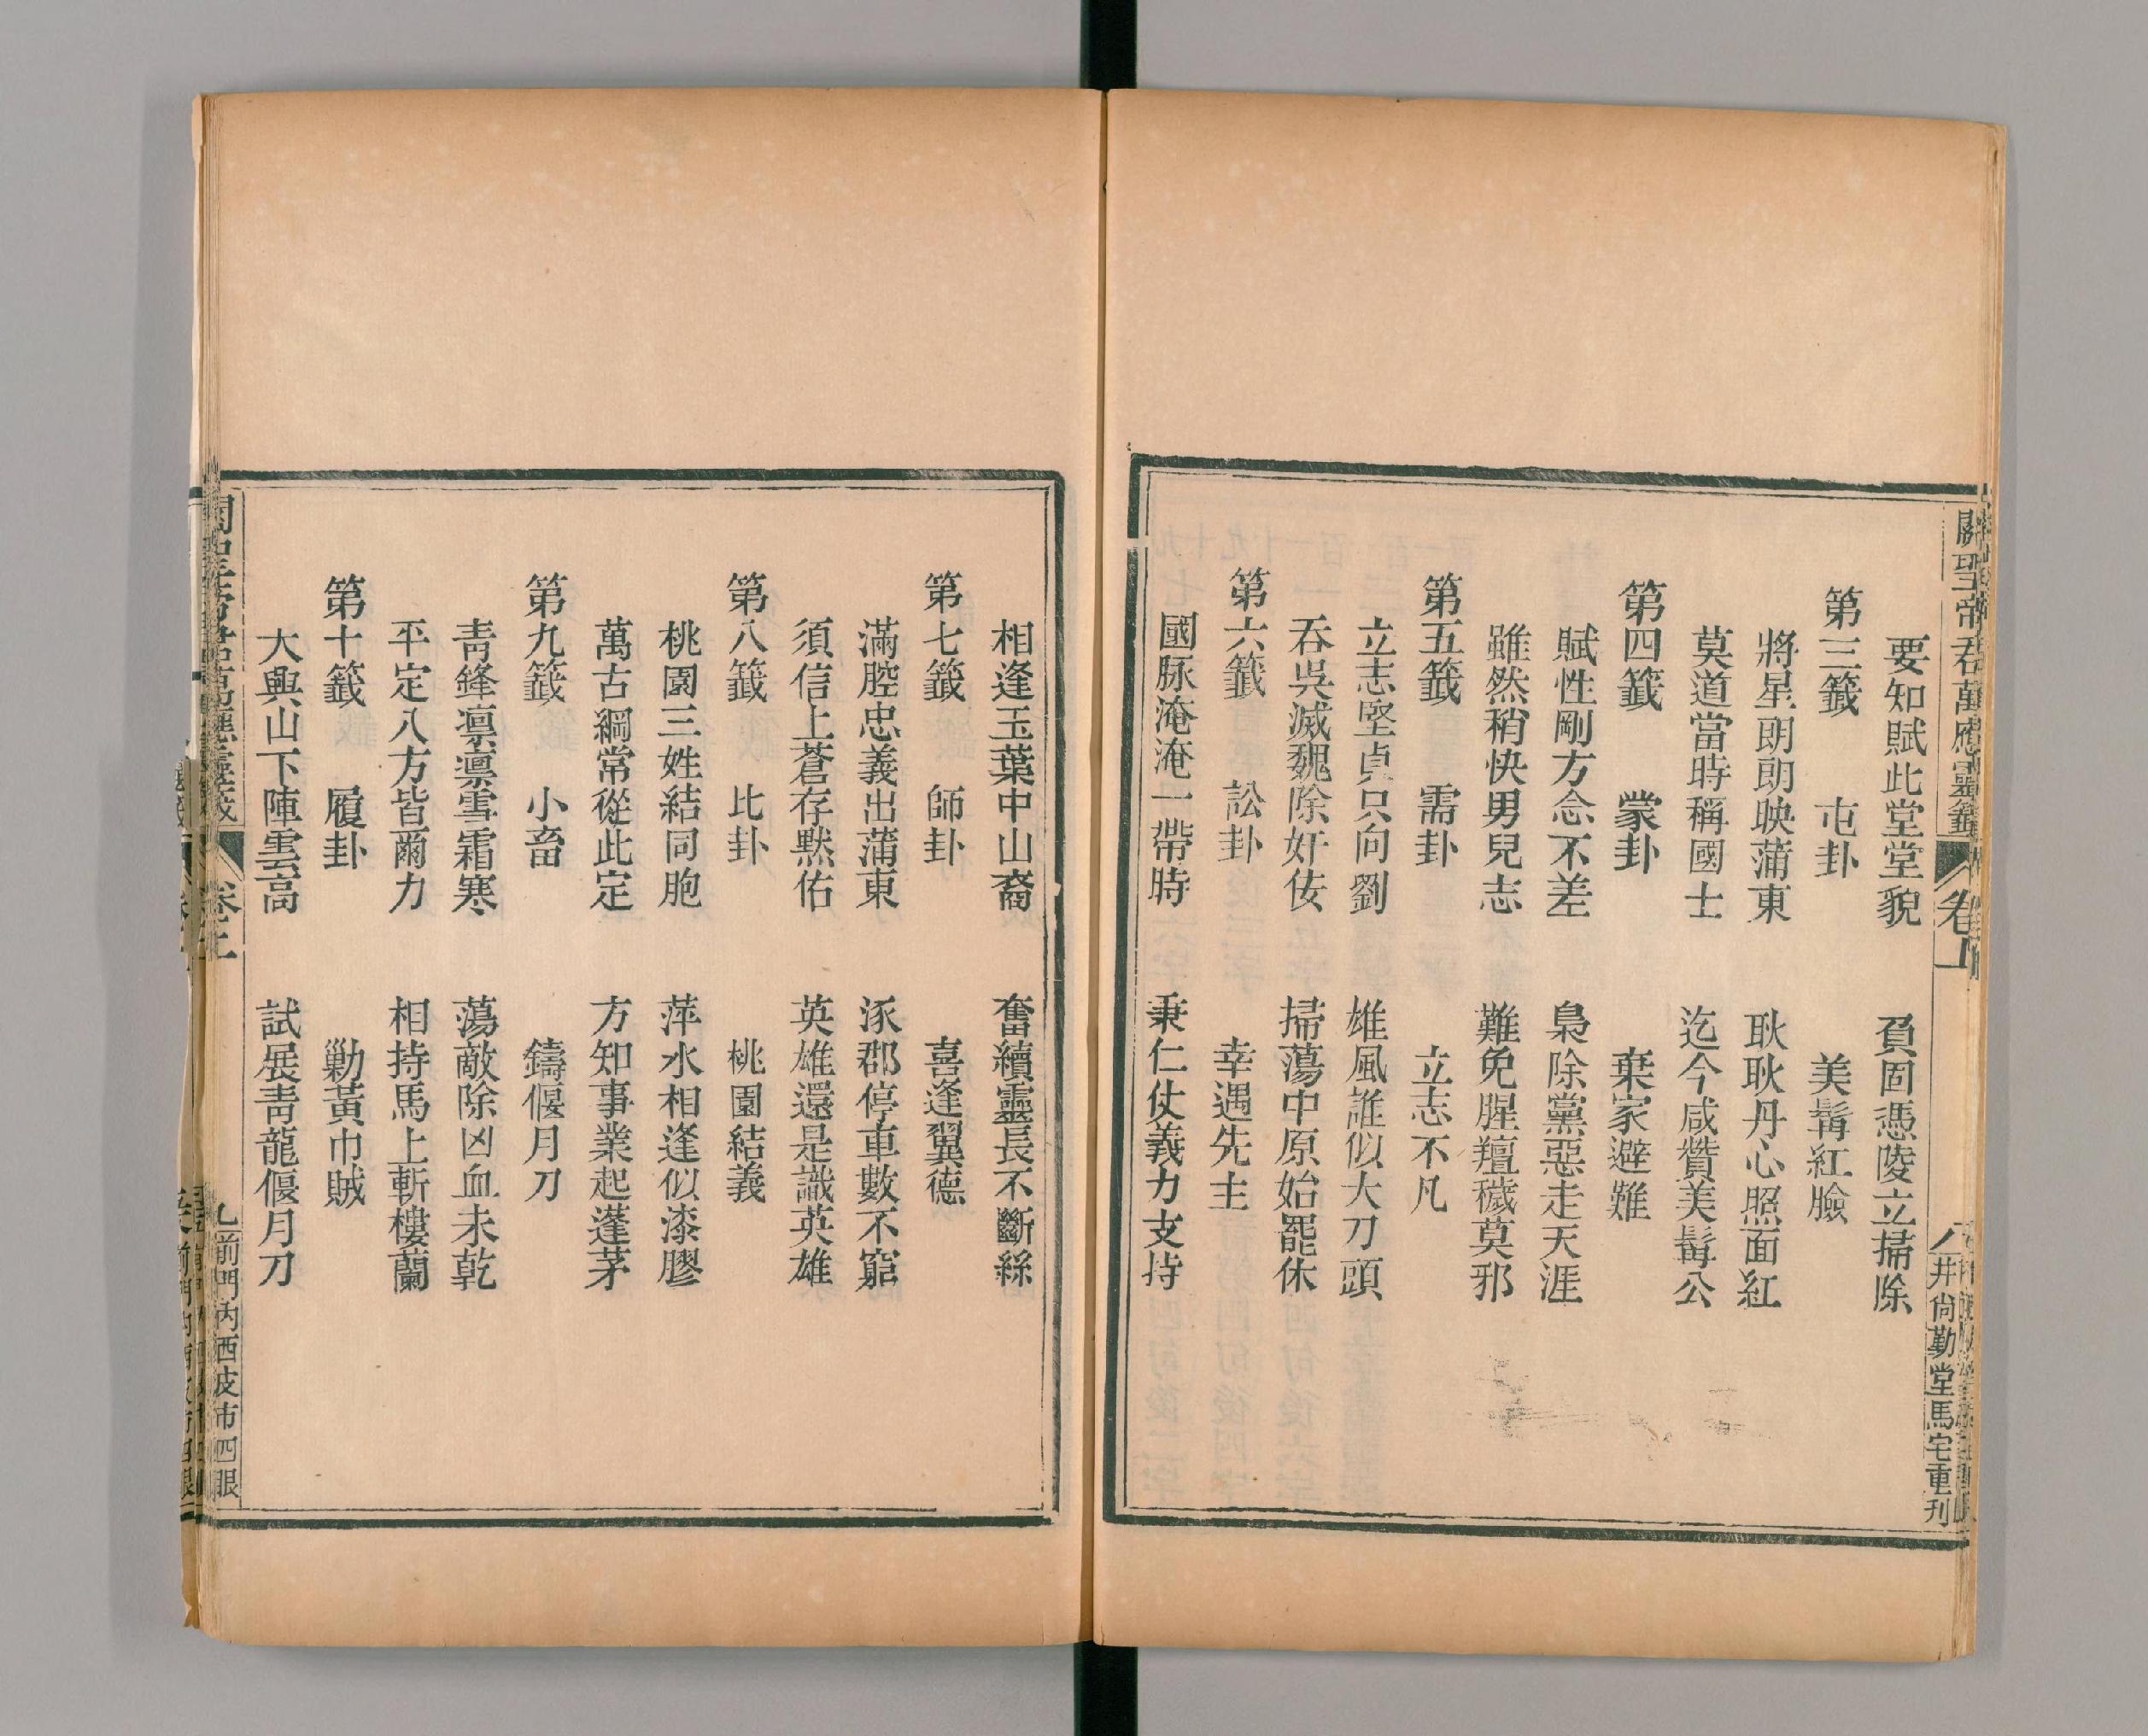 關聖帝君萬應靈籤 卷上 八 井尙勤堂馬宅重刊
要知賦此堂堂貌 負固憑陵立掃除
第三籤 屯卦 美髯紅臉
將星朗朗映蒲東 耿耿丹心照面紅
莫道當時稱國士 迄今咸贊美髯公
第四籤 蒙卦 棄家避難
賦性剛方念不差 梟除黨惡走天涯
雖然稍快男兒志 難免腥羶穢莫邪
第五籤 需卦 立志不凡
立志堅貞只向劉 雄風誰似大刀頭
吞吳滅魏除奸佞 掃蕩中原始罷休
第六籤 訟卦 幸遇先主
國脉淹淹一帶時 秉仁仗義力支持
相逢玉葉中山裔 奮續靈長不斷絲
第七籤 師卦 喜逢翼德
滿腔忠義出蒲東 涿郡停車數不窮
須信上蒼存默佑 英雄還是識英雄
第八籤 比卦 桃園結義
桃園三姓結同胞 萍水相逢似漆膠
萬古綱常從此定 方知事業起蓬茅
第九籤 小畜 鑄偃月刀
青鋒凛凛雪霜寒 蕩敵除凶血未乾
平定八方皆爾力 相持馬上斬樓蘭
第十籤 履卦 勦黃巾賊
大興山下陣雲高 試展青龍偃月刀
卷上 九 前門內西皮市四眼